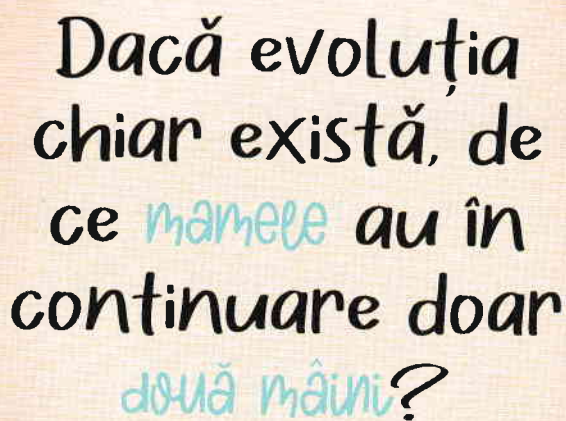 Dacă evoluția
chiar există, de
ce mamele au în
continuare doar
două mâini?